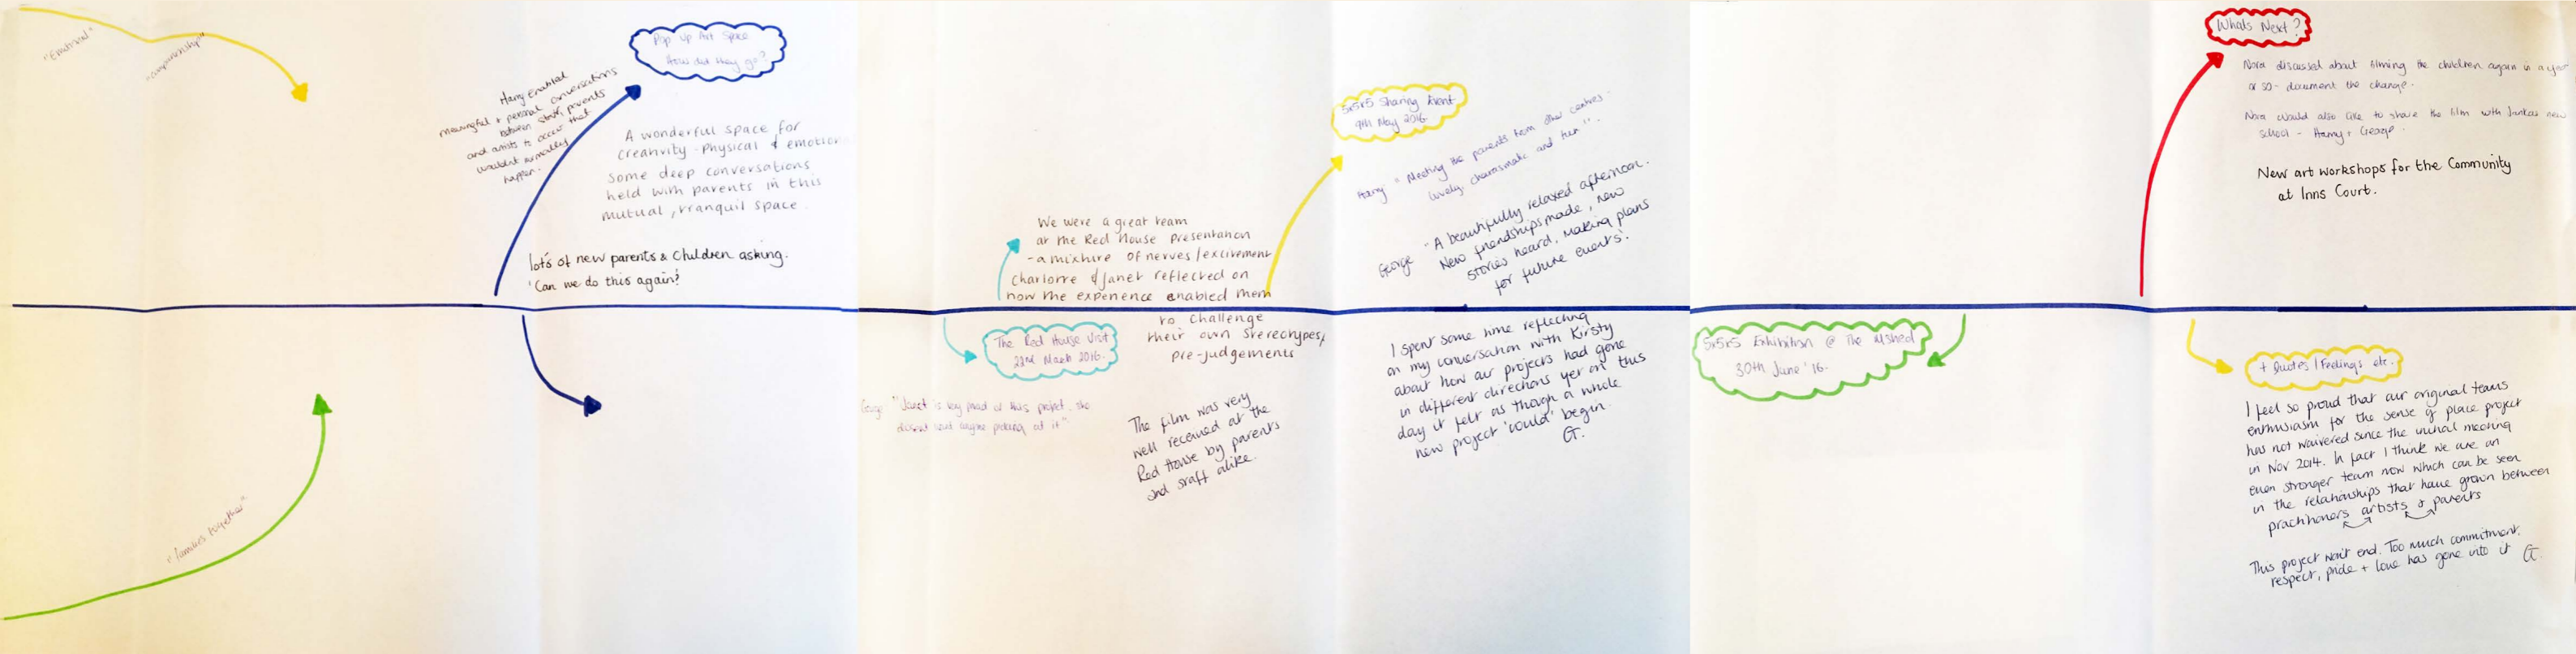 "Emotional"
"companionship"
"families together"
Pop Up Art Space
How did they go?
Harry enabled
meaningful + personal conversations
between staff, parents
and artists to occur that
wouldn't normally
happen.
A wonderful space for
creativity - physical & emotion
some deep conversations
held with parents in this
mutual, tranquil space.
lots of new parents & children asking.
'Can we do this again?
We were a great team
at the Red House Presentation
- a mixture of nerves/excitement
Charlotte & Janet reflected on
how the experience enabled them
to challenge
their own stereotypes,
pre-judgements
The Red House Visit
22nd March 2016.
George "Janet is very proud of this project, she
doesnt want anyone picking at it".
The film was very
well received at the
Red House by parents
and staff alike.
5x5x5 Sharing Event
9th May 2016.
Harry "Meeting the parents from other centres -
lovely, charasmatic and fun".
George "A beautifully relaxed afternoon.
New friendships made, new
stories heard, making plans
for future events'.
I spent some time reflecting
on my conversation with Kirsty
about how our projects had gone
in different directions yet on this
day it felt as though a whole
new project 'could' begin.
G.
5x5x5 Exhibition @ The MShed
30th June '16.
Whats Next?
Nora discussed about filming the children again in a year
or so - document the change.
Nora would also like to share the film with Jankas new
school - Harry + George.
New art workshops for the Community
at Inns Court.
+ Quotes / Feelings etc.
I feel so proud that our original teams
enthusiasm for the sense of place project
has not waivered since the initial meeting
in Nov 2014. In fact I think we are an
even stronger team now which can be seen
in the relationships that have grown between
practitioners artists & parents
This project won't end. Too much commitment,
respect, pride + love has gone into it G.